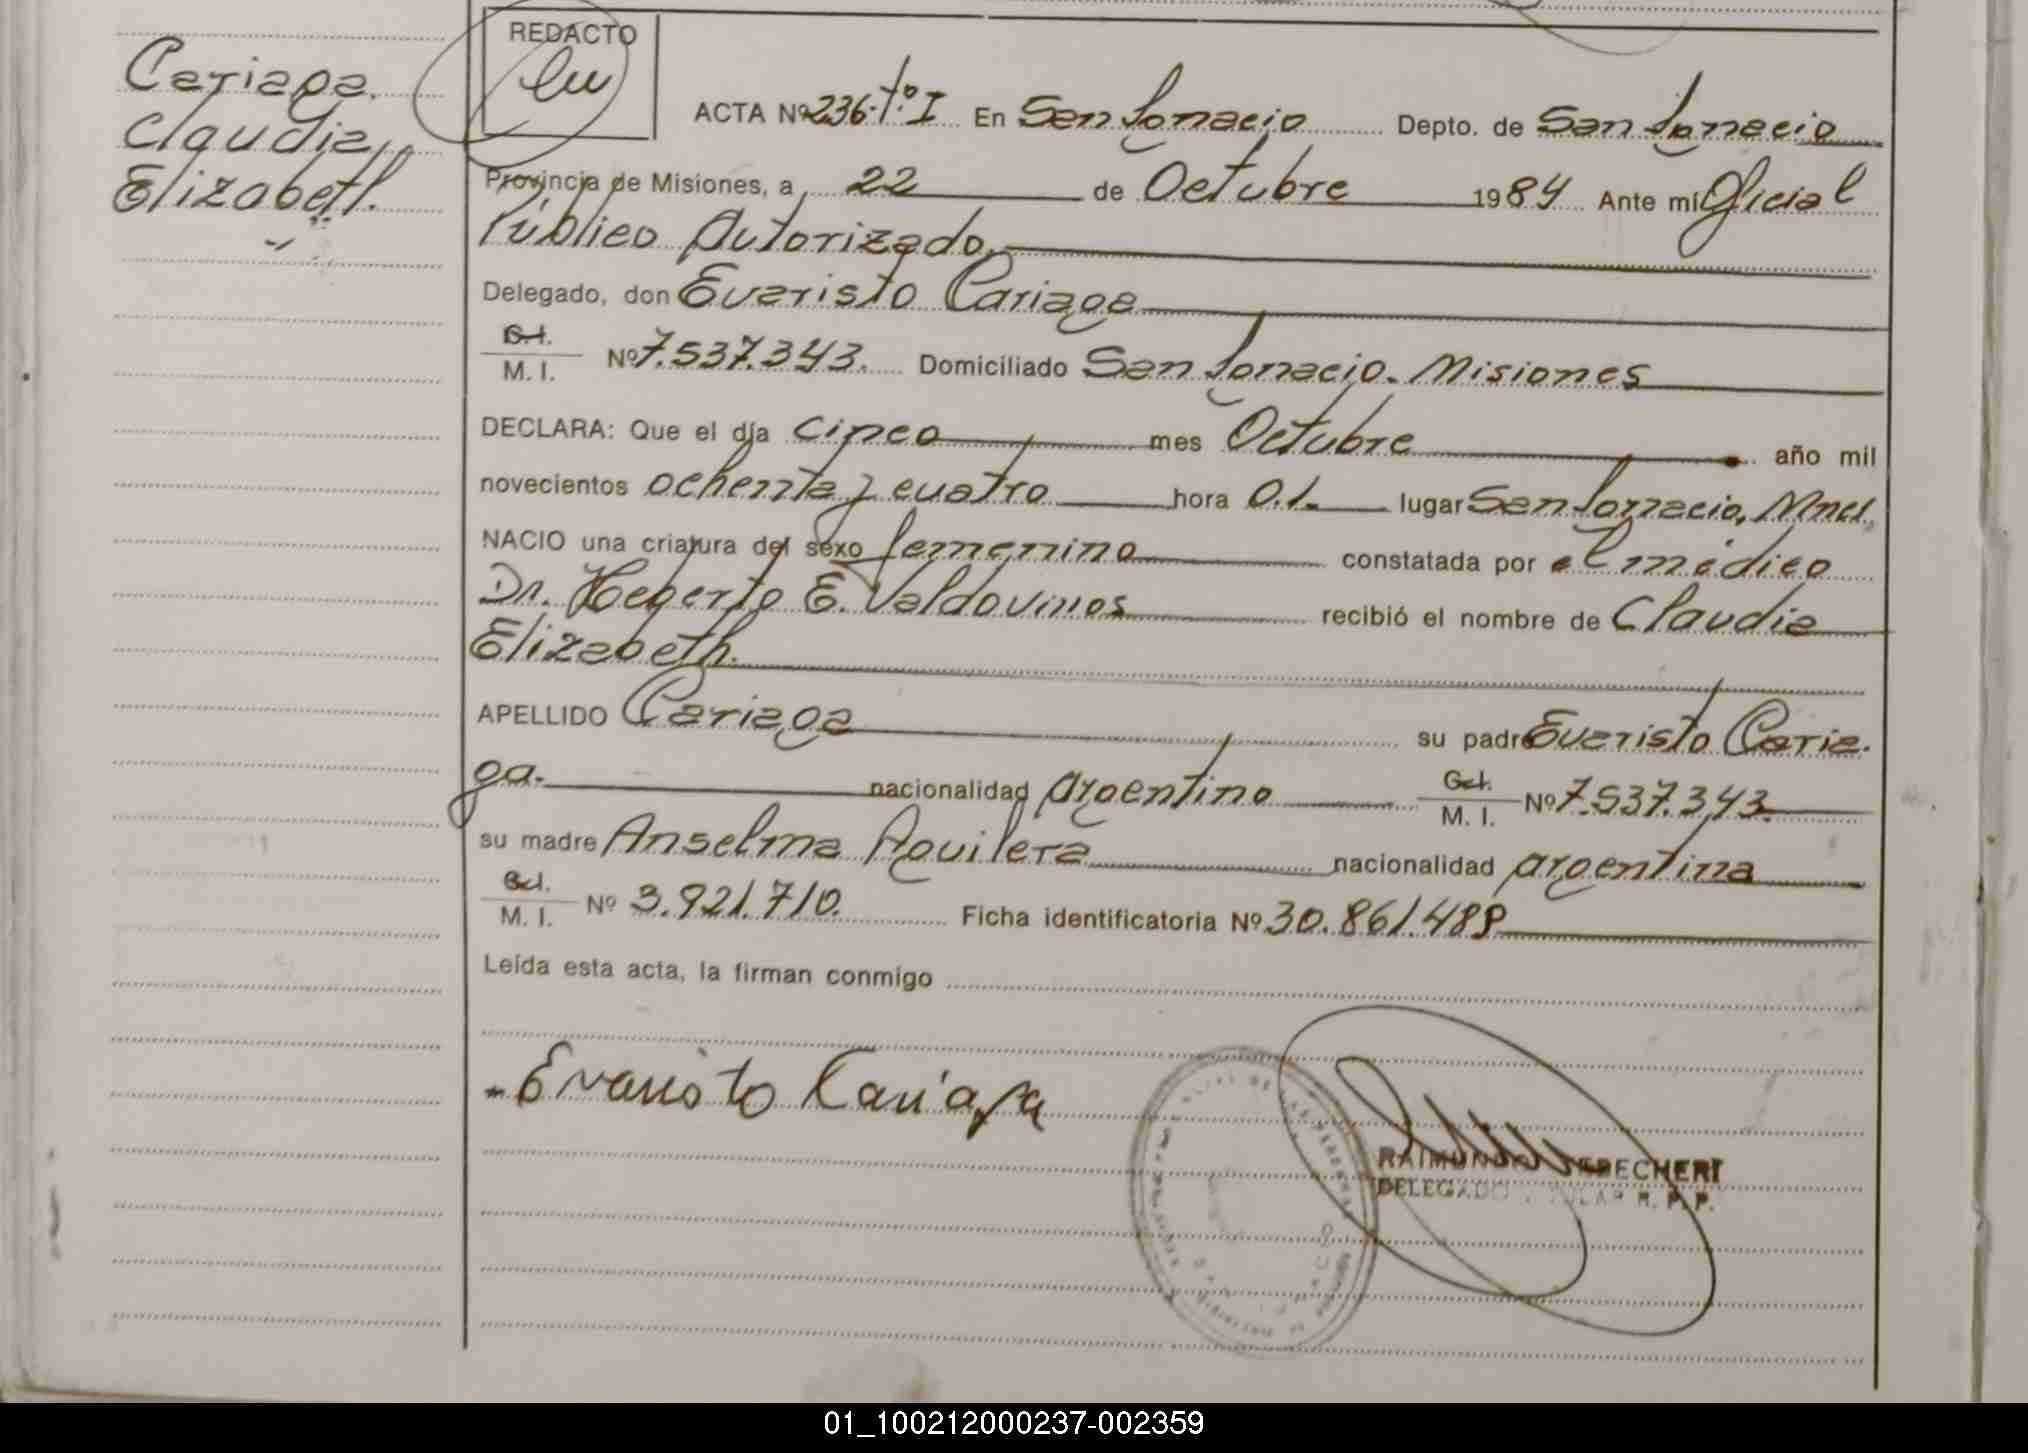 Cariaga.
Claudia
Elizabeth.
REDACTO
ACTA Nº 236-tº I En San Ignacio Depto. de San Ignacio
Provincia de Misiones, a 22 de Octubre 1984 Ante mi Oficial
Público Autorizado.
Delegado, don Evaristo Cariaga
C.I.
M. I. Nº 7.537.343. Domiciliado San Ignacio. Misiones
DECLARA: Que el día cinco mes Octubre año mil
novecientos ochenta y cuatro hora 01. lugar San Ignacio, Mnes.
NACIO una criatura del sexo femenino constatada por el médico
Dr. E. Valdovinos recibió el nombre de Claudia
Elizabeth.
APELLIDO Cariaga su padre Evaristo Caria-
ga. nacionalidad argentino M. I. Nº 7.537.343.
su madre Anselma Aguilera nacionalidad argentina
M. I. Nº 3.921.710. Ficha identificatoria Nº 30.861.489
Leída esta acta, la firman conmigo
Evaristo Cariaga
RAIMUNDO
DELEGADO TITULAR R. P. P.
01_100212000237-002359